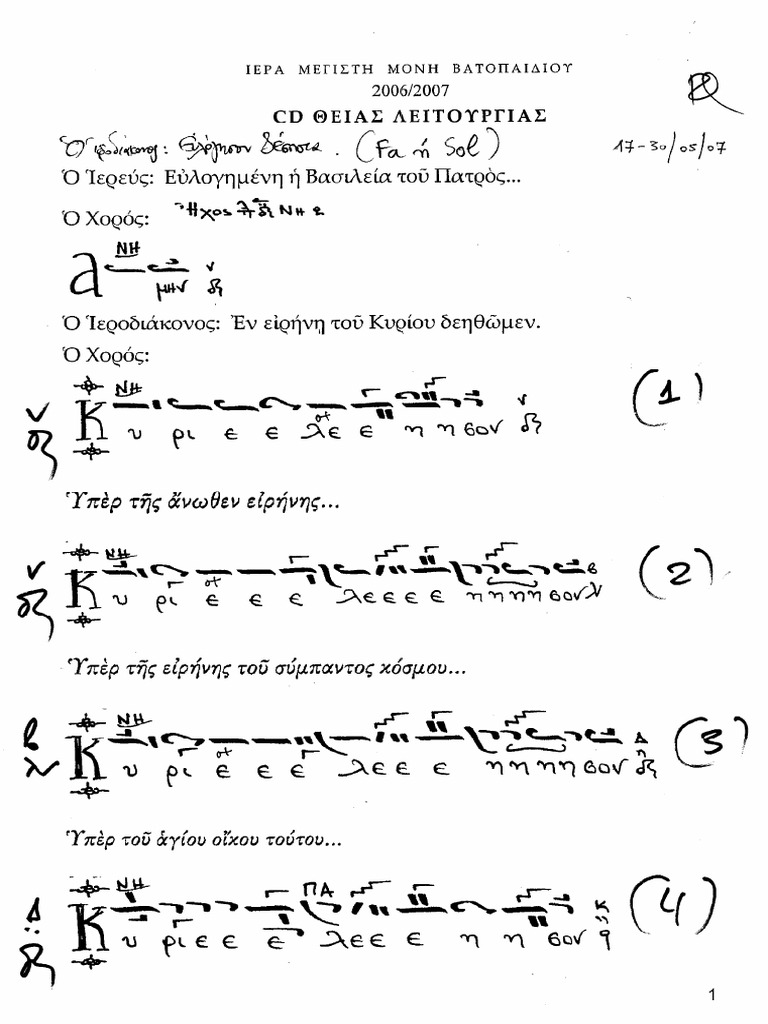 ΙΕΡΑ ΜΕΓΙΣΤΗ ΜΟΝΗ ΒΑΤΟΠΑΙΔΙΟΥ
2006/2007
CD ΘΕΙΑΣ ΛΕΙΤΟΥΡΓΙΑΣ
Ὁ ἱεροδιάκονος: Εὐλόγησον Δέσποτα. (Fa ἤ Sol) 17-30/05/07
Ὁ Ἱερεύς: Εὐλογημένη ἡ Βασιλεία τοῦ Πατρὸς...
Ὁ Χορός: Ἦχος Νη
ΝΗ
α μην
Ὁ Ἱεροδιάκονος: Ἐν εἰρήνῃ τοῦ Κυρίου δεηθῶμεν.
Ὁ Χορός:
ΝΗ (1)
Κ υ ρι ε ε λε ε η η σον
Ὑπὲρ τῆς ἄνωθεν εἰρήνης...
ΝΗ (2)
Κ υ ρι ε ε ε λε ε ε ε η η η η σον
Ὑπὲρ τῆς εἰρήνης τοῦ σύμπαντος κόσμου...
ΝΗ (3)
Κ υ ρι ε ε ε λε ε ε ε η η η η σον
Ὑπὲρ τοῦ ἁγίου οἴκου τούτου...
ΝΗ ΠΑ (4)
Κ υ ρι ε ε ε λε ε ε ε η η σον
1